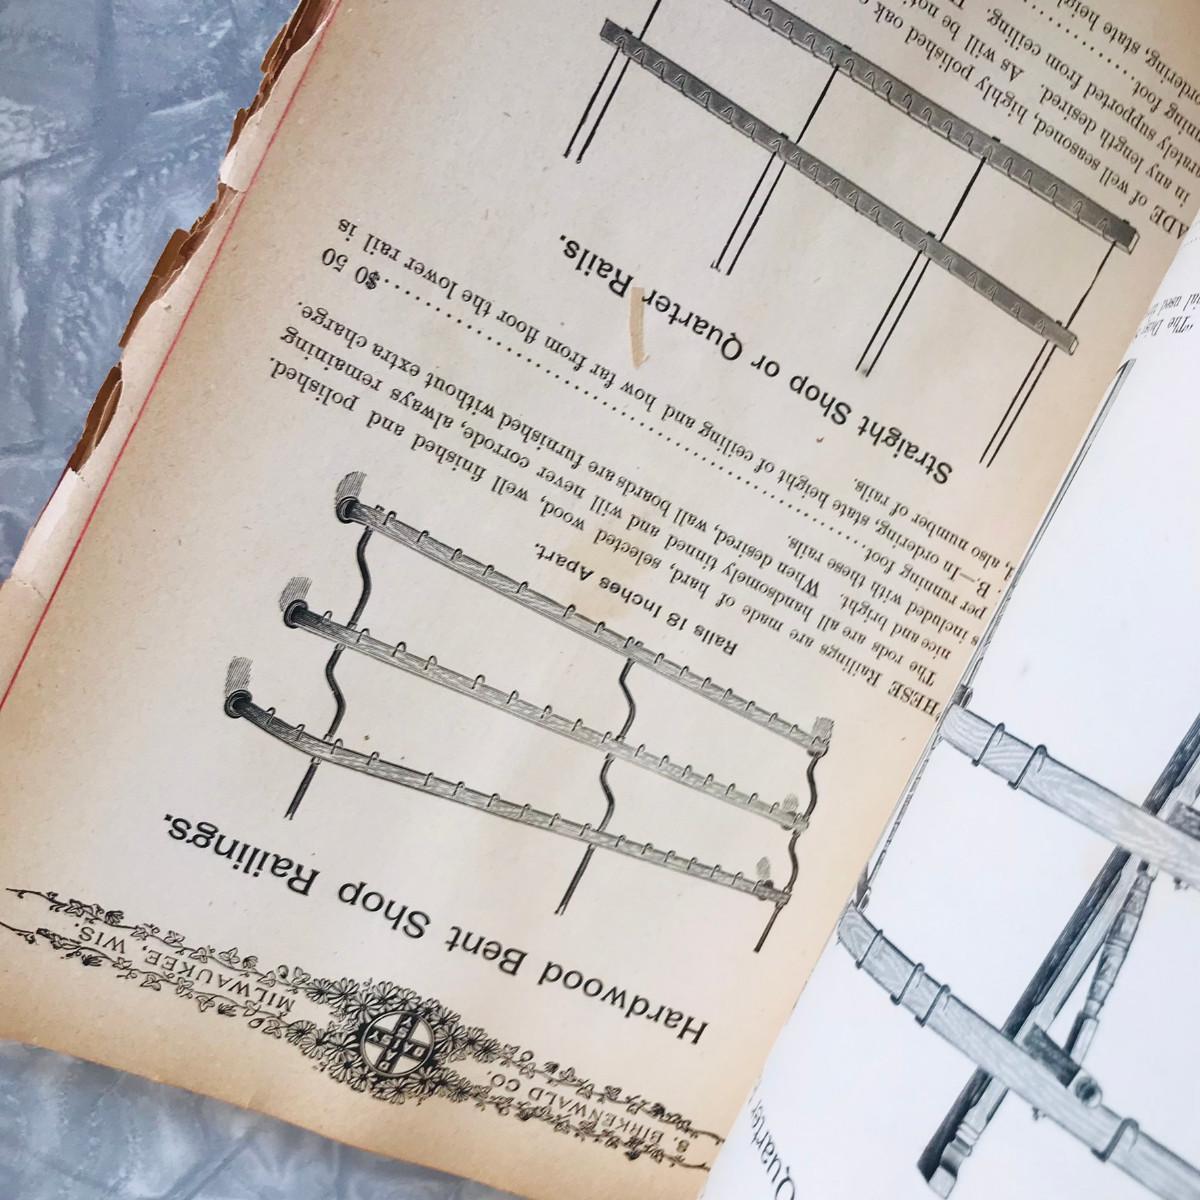 S. BIRKENWALD CO.
MILWAUKEE, WIS.
DAISY
Hardwood Bent Shop Railings.
Rails 18 Inches Apart.
HESE Railings are made of hard, selected wood, well finished and polished.
The rods are all handsomely tinned and will never corrode, always remaining
nice and bright. When desired, wall boards are furnished without extra charge.
s included with these rails.
per running foot. $0 50
B.—In ordering, state height of ceiling and how far from floor the lower rail is
also number of rails.
Straight Shop or Quarter Rails.
ADE of well seasoned, highly polished oak
in any length desired. As will be
arately supported from ceiling.
ning foot.
ordering, state
Quarter
"The
used